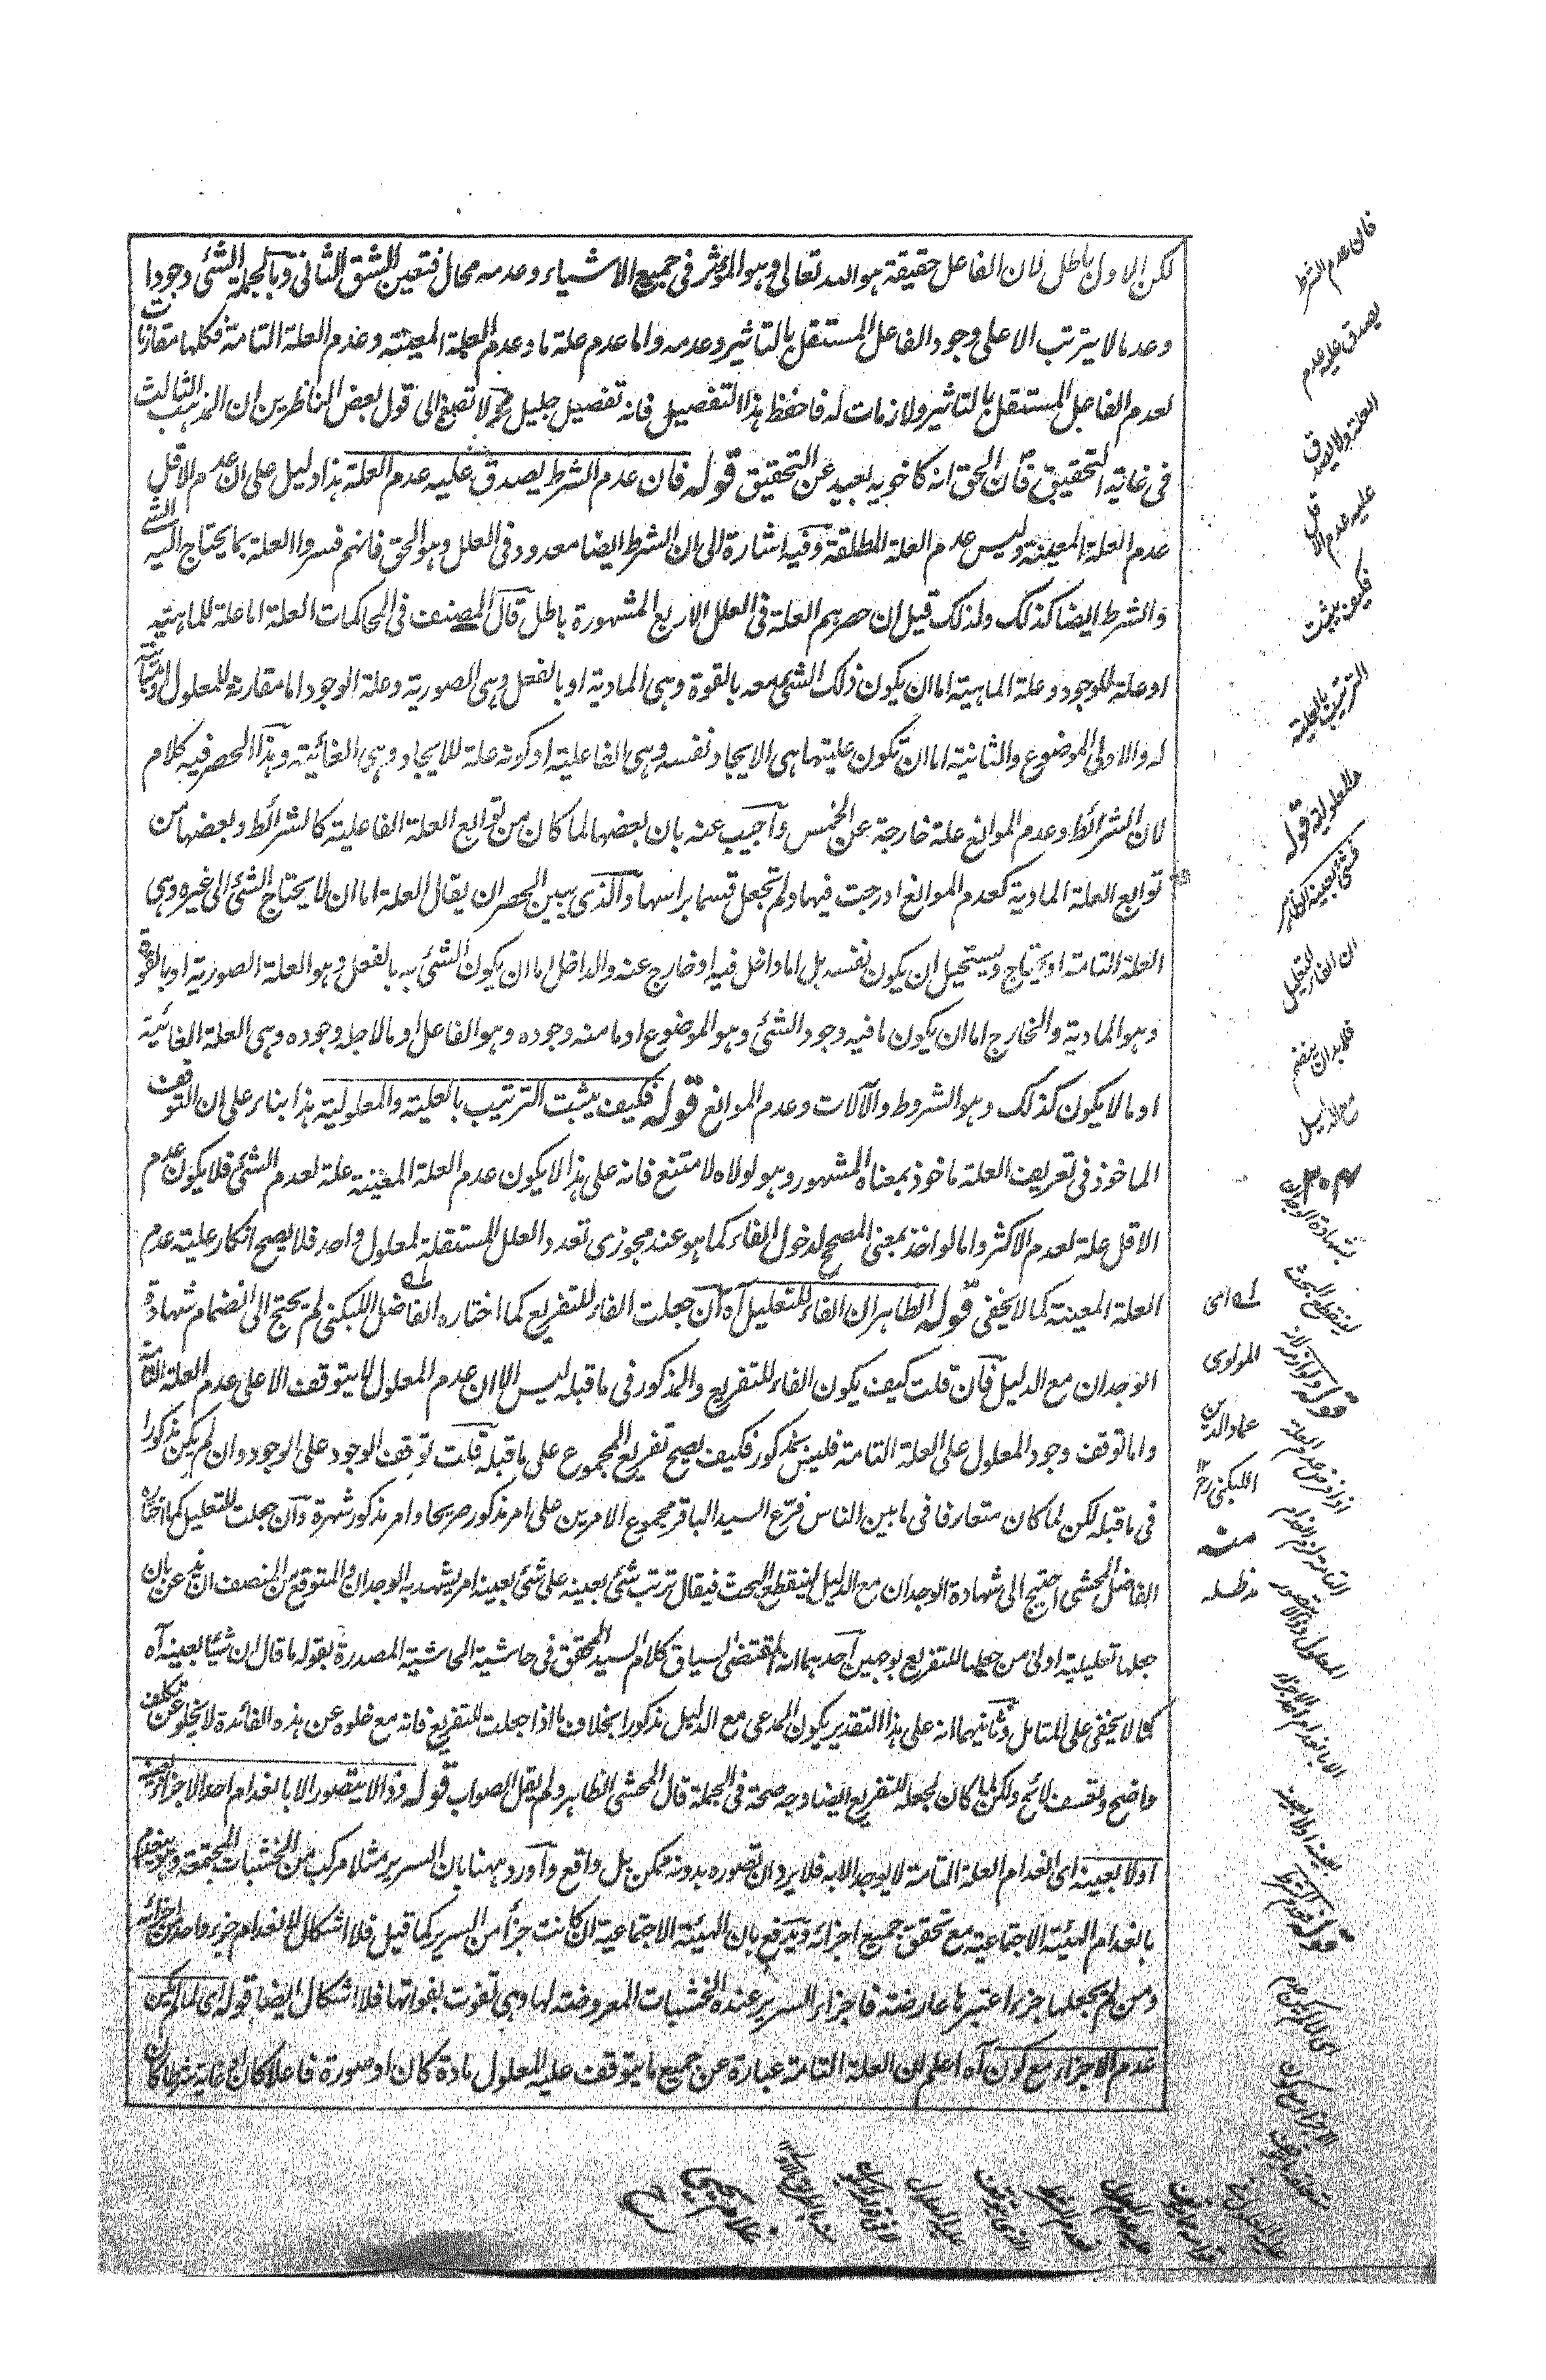 لكن الاول باطل لان الفاعل حقيقة هو الله تعالى وهو المؤثر فى جميع الاشياء وعدمه محال فتعين الشق الثانى وبالجملة الشئ وجودا
وعدما لا يترتب الا على وجود الفاعل المستقل بالتاثير وعدمه واما عدم علة ما وعدم العلة المعينة وعدم العلة التامة فكلها مقارنات
لعدم الفاعل المستقل بالتاثير ولازمات له فاحفظ هذا التفصيل فانه تفصيل جليل ولا تصغ الى قول بعض الناظرين ان المذهب الثالث
فى غاية التحقيق فان الحق انه كاخويه بعيد عن التحقيق قوله فان عدم الشرط يصدق عليه عدم العلة هذا دليل على ان عدم الاقل
عدم العلة المعينة وليس عدم العلة المطلقة وفيه اشارة الى ان الشرط ايضا معدود فى العلل وهو الحق فانهم فسروا العلة بما يحتاج اليه الشئ
والشرط ايضا كذلك ولذلك قيل ان حصرهم العلة فى العلل الاربع المشهورة باطل قال المصنف فى المحاكمات العلة اما علة للماهية
او علة للوجود وعلة الماهية اما ان يكون ذلك الشئ معه بالقوة وهى المادية او بالفعل وهى الصورية وعلة الوجود اما مقارنة للمعلول او مباينة
له والاولى الموضوع والثانية اما ان تكون عليتها هى الايجاد نفسه وهى الفاعلية او كونه علة للايجاد وهى الغائية وهذا الحصر فيه كلام
لان الشرائط وعدم الموانع علة خارجة عن الخمس واجيب عنه بان بعضها لما كان من توابع العلة الفاعلية كالشرائط وبعضها من
توابع العلة المادية كعدم الموانع ادرجت فيها ولم تجعل قسما براسها والذى يبين الحصر ان يقال العلة اما ان لا يحتاج الشئ الى غيره وهى
العلة التامة او يحتاج ويستحيل ان يكون نفسه بل اما داخل فيه او خارج عنه والداخل اما ان يكون الشئ به بالفعل وهو العلة الصورية او بالقوة
وهو المادية والخارج اما ان يكون ما فيه وجود الشئ وهو الموضوع او ما منه وجوده وهو الفاعل او ما لاجله وجوده وهى العلة الغائية
او ما لا يكون كذلك وهو الشروط والآلات وعدم الموانع قوله فكيف يثبت الترتيب بالعلية والمعلولية هذا بناء على ان التوقف
الماخوذ فى تعريف العلة ماخوذ بمعناه المشهور وهو لولاه لامتنع فانه على هذا لا يكون عدم العلة المعينة علة لعدم الشئ فلا يكون عدم
الاقل علة لعدم الاكثر واما لو اخذ بمعنى المصحح لدخول الفاء كما هو عند مجوزى تعدد العلل المستقلة لمعلول واحد فلا يصح انكار علية عدم
العلة المعينة كما لا يخفى قوله الظاهر ان الفاء للتعليل آه ان جعلت الفاء للتفريع كما اختاره الفاضل اللبكنى لم يحتج الى انضمام شهادة
الوجدان مع الدليل فان قلت كيف يكون الفاء للتفريع والمذكور فى ما قبله ليس الا ان عدم المعلول لا يتوقف الا على عدم العلة التامة
واما توقف وجود المعلول على العلة التامة فليس بمذكور فكيف يصح تفريع المجموع على ما قبله قلت توقف الوجود على الوجود وان لم يكن مذكورا
فى ما قبله لكن لما كان متعارفا فى ما بين الناس فرّع السيد الباقر مجموع الامرين على امر مذكور صريحا وامر مذكور شهرة وان جعلت للتعليل كما اختاره
الفاضل المحشى احتيج الى شهادة الوجدان مع الدليل لينقطع البحث فيقال ترتب شئ بعينه على شئ بعينه امر يشهد به الوجدان والمتوقع من المنصف ان يذعن بان
جعلها تعليلية اولى من جعلها للتفريع بوجهين احدهما انه المقتضى لسياق كلام السيد المحقق فى حاشية الحاشية المصدرة بقوله ما قال ان شيئا بعينه آه
كما لا يخفى على المتامل وثانيهما انه على هذا التقدير يكون المدعى مع الدليل مذكورا بخلاف ما اذا جعلت للتفريع فانه مع خلوه عن هذه الفائدة لا يخلو عن تكلف
واضح وتعسف لائح ولكن لما كان لجعله للتفريع ايضا وجه صحة فى الجملة قال المحشى الظاهر ولم يقل الصواب قوله وذا لا يتصور الا بانعدام احد الاجزاء بعينه
او لا بعينه اى انعدام العلة التامة لا يوجد الا به فلا يرد ان تصوره بدونه ممكن بل واقع واورد ههنا بان السرير مثلا مركب من الخشبات المجتمعة وهو ينعدم
بانعدام الهيئة الاجتماعية مع تحقق جميع اجزائه ويدفع بان الهيئة الاجتماعية ان كانت جزأ من السرير كما قيل فلا اشكال لانعدام جزء واحد من اجزائه
ومن لم يجعلها جزءا اعتبرها عارضة فاجزاء السرير عنده الخشبات المعروضة لها وهى تفوت بفواتها فلا اشكال ايضا قوله اى لما لم يكن
عدم الاجزاء مع كون آه اعلم ان العلة التامة عبارة عن جميع ما يتوقف عليه المعلول مادة كان او صورة فاعلا كان او غاية شرطا كان
فان عدم الشرط
يصدق عليه عدم
العلة ولا يصدق
عليه عدم الاقل
فكيف يثبت
الترتيب بالعلية
والمعلولية قوله
فشئ بعينه الظاهر
ان الفاء للتعليل
فلا بد ان ينضم
مع الدليل
شهادة الوجدان
لينقطع البحث
له اى
المولوى
عماد الدين
اللبكنى رح ١٢
منه
مد ظله
المعلول وذا لا يتصور
الا بانعدام احد الاجزاء
بعينه او لا بعينه
اى لما لم يكن عدم
الاجزاء مع كون
غلام يحيى
رح